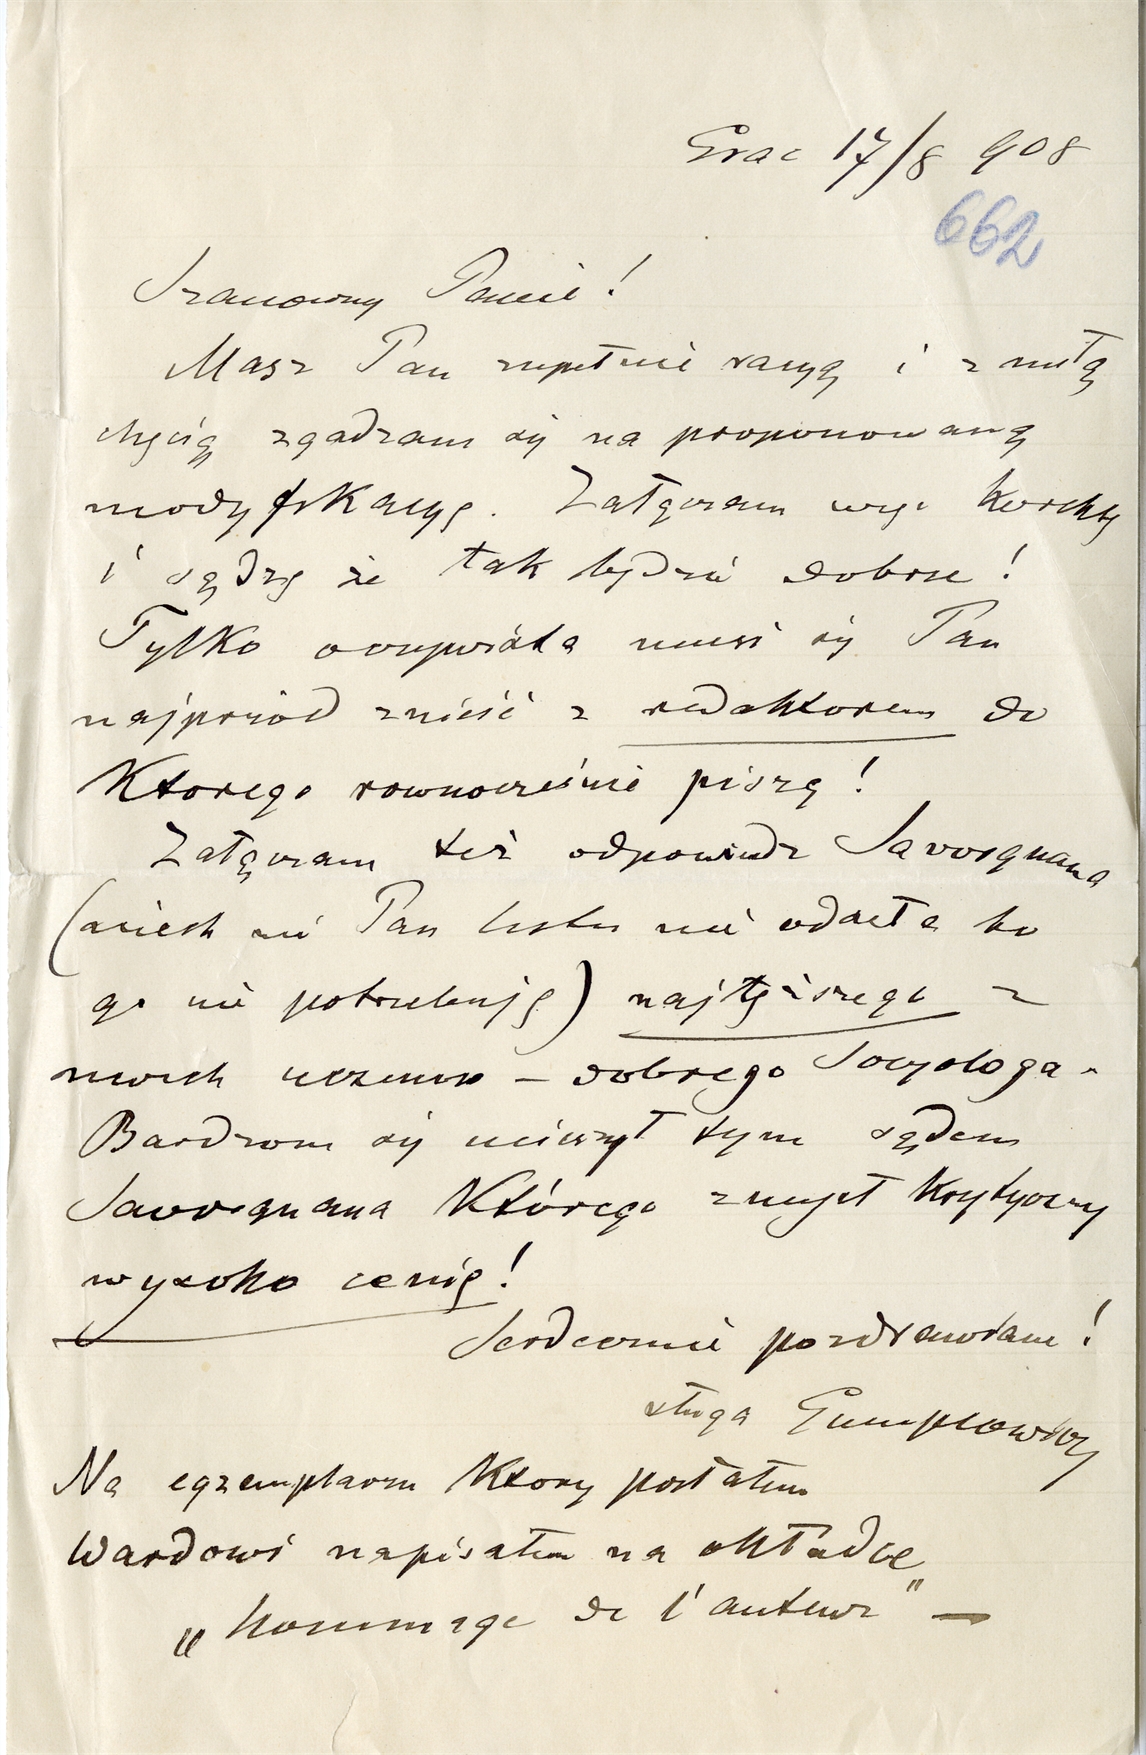 Grac 17/8 908
662
Szanowny Panie!
Masz Pan zupełnie racyę i z miłą
chęcią zgadzam się na proponowaną
modyfikacyę. Załączam więc korektę
i sądzę że tak będzie dobrze!
Tylko oczywiście musi się Pan
najprzód znieść z redaktorem do
Ktorego rownocześnie piszę!
Załączam też odpowiedz Savorgnana
(niech mi Pan listu nie odseła bo
go nie potrzebuję) najtęższego z
moich uczniow – dobrego Socyologa.
Bardzom się ucieszył tym sądem
Savorgnana Którego zmysł Krytyczny
wysoko cenię!
Serdecznie pozdrawiam!
sługa Gumplowicz
Na egzemplarzu Ktory posłałem
Wardowi napisałem na okładce
„hommage de l'auteur" —